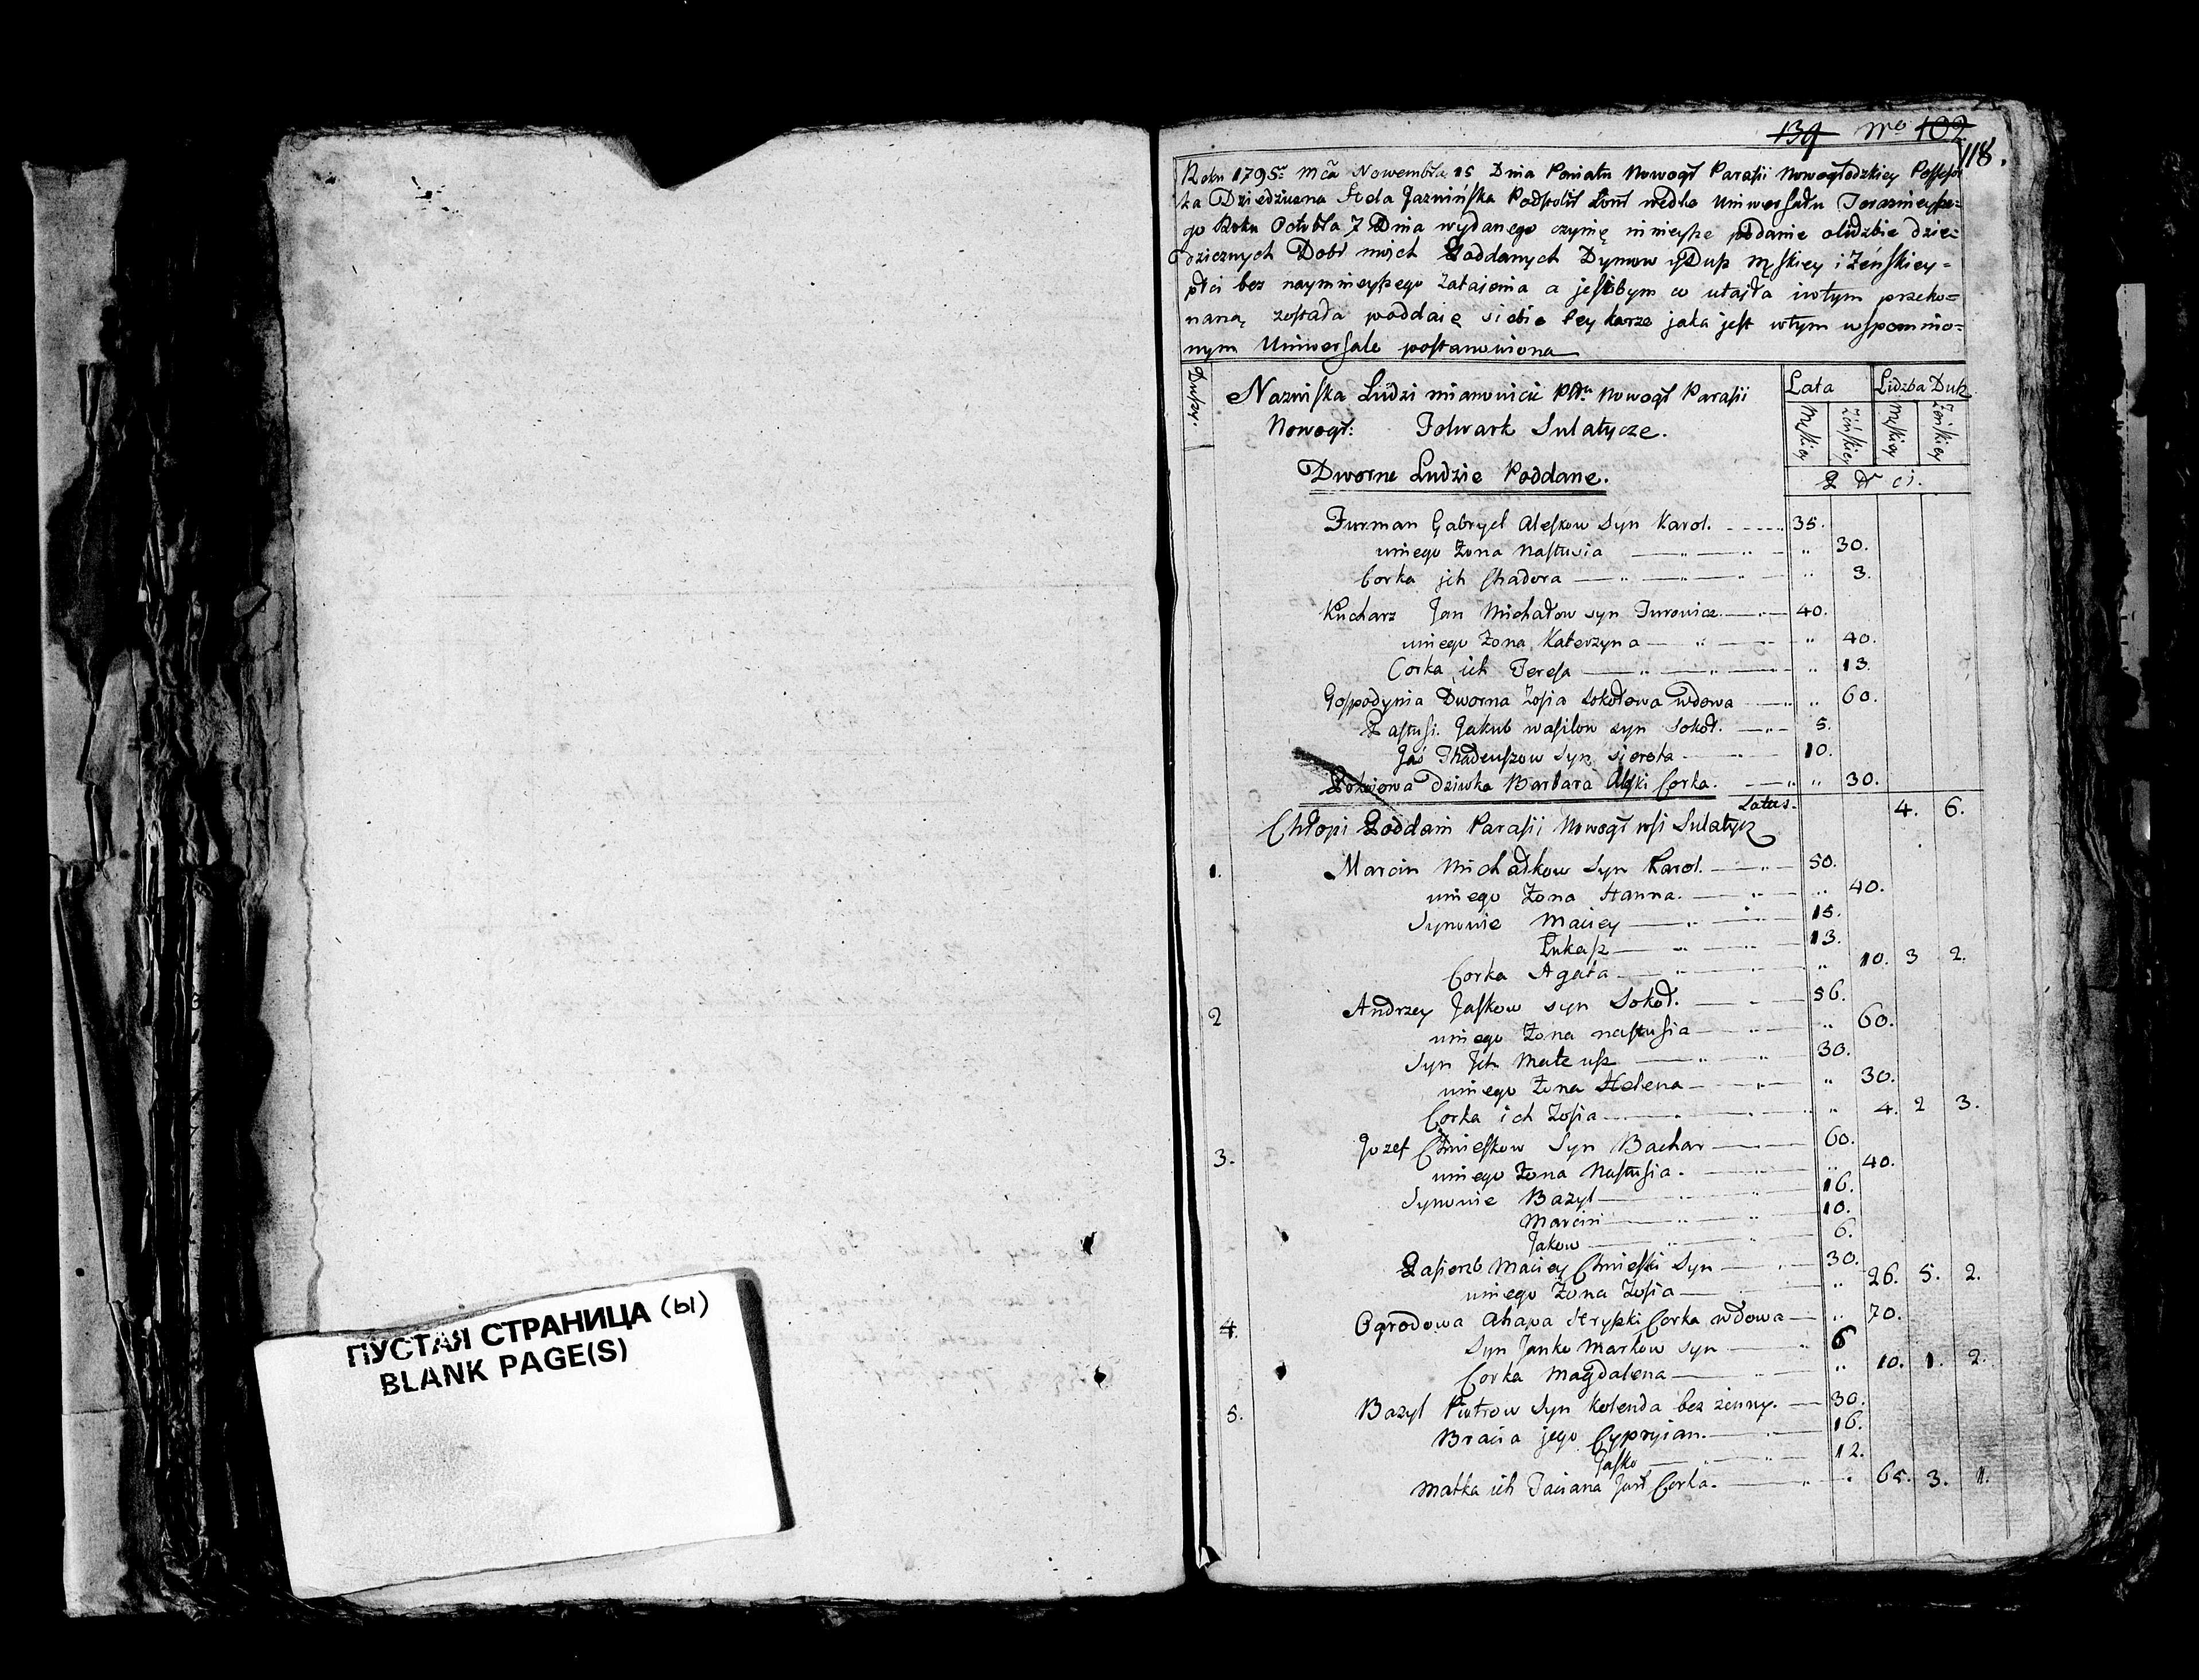 ПУСТАЯ СТРАНИЦА (ы)
BLANK PAGE(S)
139 Nro 102
118.
Roku 1795 Mca Nowembra 15 Dnia Powiatu Nowogr Parafii Nowogrodzkiey
ka Dziedziczna Jazwińska wedle Uniwersału
go Roku Octobra 7 Dnia wydanego czynię ninieysze podanie o lidzbie dzie=
dzicznych Dobr moich Poddanych Dymow y Dusz Męskiey i Zeńskiey=
płci bez naymnieyszego zataienia a jeslibym co utaiła i w tym przeko=
naną została poddaię siebie tey karze jaka jest w tym wspomnio=
nym Uniwersale postanowiona
Nazwiska Ludzi mianowicie Nowogr Parafii
Nowogr: Folwark Sulatycze.
Lata Lidzba Dusz
Męskiey Zeńskiey Męskiey Zeńskiey
Płci.
Dworne Ludzie Poddane.
Furman Gabryel Aleskow Syn Karol. 35.
u niego Zona Nastusia „ 30.
Corka jch Chadora „ 3.
Kucharz Jan Michałow syn Jurowicz 40.
u niego Zona Katerzyna „ 40.
Corka ich Teresa „ 13.
Gospodynia Dworna Zosia Sokołowa wdowa „ 60.
Pastusi. Jakub wasilow syn Sokoł. 5.
Jaś Thadeuszow Syn sierota 10.
Pokojowa Dziwka Barbara Corka. „ 30.
Latus. 4. 6.
Chłopi Poddani Parafii Nowogr wsi Sulatycz
1. Marcin Michałkow Syn Karol. 50.
u niego Zona Hanna. „ 40.
Synowie Maciey 15.
Łukasz 13.
Corka Agata „ 10. 3 2.
2 Andrzey Jaskow syn Sokoł. 56.
u niego Zona nastusia „ 60.
Syn Jch Mateusz 30.
u niego Zona Helena „ 30.
Corka ich Zosia „ 4. 2 3.
3. Jozef Chmieskow Syn Bachar 60.
u niego Zona Nastusia. „ 40.
Synowie Bazyl 16.
Marcin 10.
Jakow 6.
Pasierzb Maciey Chmieski Syn 30.
u niego Zona Zosia „ 26. 5. 2.
4. Ogrodowa Ahapa Hryszki Corka wdowa „ 70.
Syn Janko Markow syn 6
Corka Magdalena „ 10. 1. 2.
5. Bazyl Piotrow Syn Kolenda bez zenny. 30.
Bracia jego Cypryian. 16.
Jasko 12.
Matka ich Taciana Corka. „ 65. 3. 1.